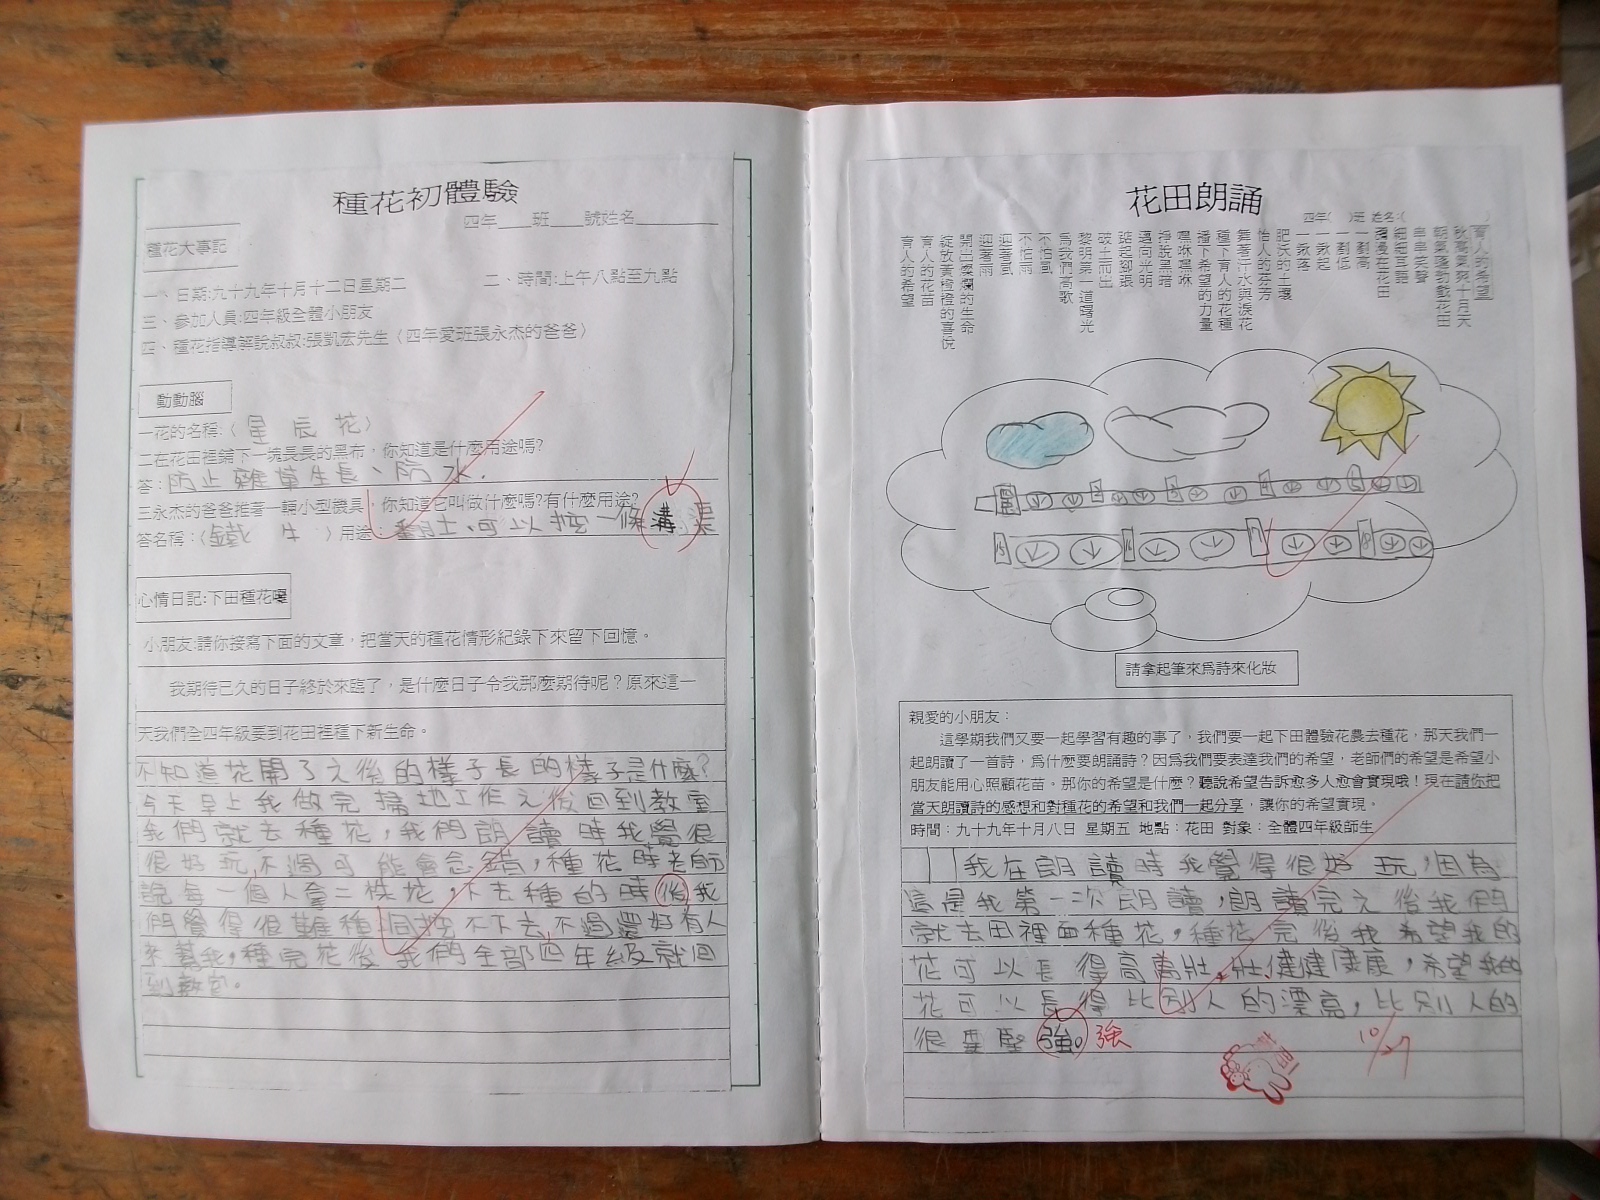 種花初體驗
四年____班____號姓名________
種花大事記
一、日期:九十九年十月十二日星期二　二、時間:上午八點至九點
三、參加人員:四年級全體小朋友
四、種花指導解說叔叔:張凱宏先生〈四年愛班張永杰的爸爸〉
動動腦
一花的名稱:〈星辰花〉
二在花田裡鋪下一塊長長的黑布，你知道是什麼用途嗎?
答:防止雜草生長、防水.
三永杰的爸爸推著一輛小型機具，你知道它叫做什麼嗎?有什麼用途?
答名稱：〈鐵牛〉用途：翻土、可以挖一條溝渠
心情日記:下田種花囉
小朋友:請你接寫下面的文章，把當天的種花情形紀錄下來留下回憶。
我期待已久的日子終於來臨了，是什麼日子令我那麼期待呢？原來這一
天我們全四年級要到花田裡種下新生命。
不知道花開了之後的樣子長的樣子是什麼?
今天早上我做完掃地工作之後回到教室
我們就去種花，我們朗讀時我覺很
很好玩,不過可能會念錯，種花時老師
說每一個人拿二株花，下去種的時後我
們覺得很難種,洞挖不下去,不過還好有人
來幫我，種完花後，我們全部四年級就回
到教室。
花田朗誦
四年(　)班 姓名:(　)
育人的希望
秋高氣爽十月天
朝氣蓬勃戲花田
串串笑聲
細細耳語
瀰漫在花田
一剷高
一剷低
一鍬起
一鍬落
肥沃的土壤
怡人的芬芳
舞著汗水與淚花
種下育人的花種
播下希望的力量
嘿咻嘿咻
掙脫黑暗
邁向光明
踮起腳張
破土而出
黎明第一道曙光
為我們高歌
不怕風
不怕雨
迎著風
迎著雨
開出燦爛的生命
綻放黃橙橙的喜悅
育人的花苗
育人的希望
請拿起筆來為詩來化妝
親愛的小朋友：
這學期我們又要一起學習有趣的事了，我們要一起下田體驗花農去種花，那天我們一
起朗讀了一首詩，為什麼要朗誦詩？因為我們要表達我們的希望，老師們的希望是希望小
朋友能用心照顧花苗。那你的希望是什麼？聽說希望告訴愈多人愈會實現哦！現在請你把
當天朗讀詩的感想和對種花的希望和我們一起分享，讓你的希望實現。
時間：九十九年十月八日 星期五 地點：花田 對象：全體四年級師生
我在朗讀時我覺得很好玩，因為
這是我第一次朗讀，朗讀完之後我們
就去田裡面種花，種花完後我希望我的
花可以長得高高壯壯,健健康康，希望我的
花可以長得比別人的漂亮，比別人的
很要堅強。強
10/27